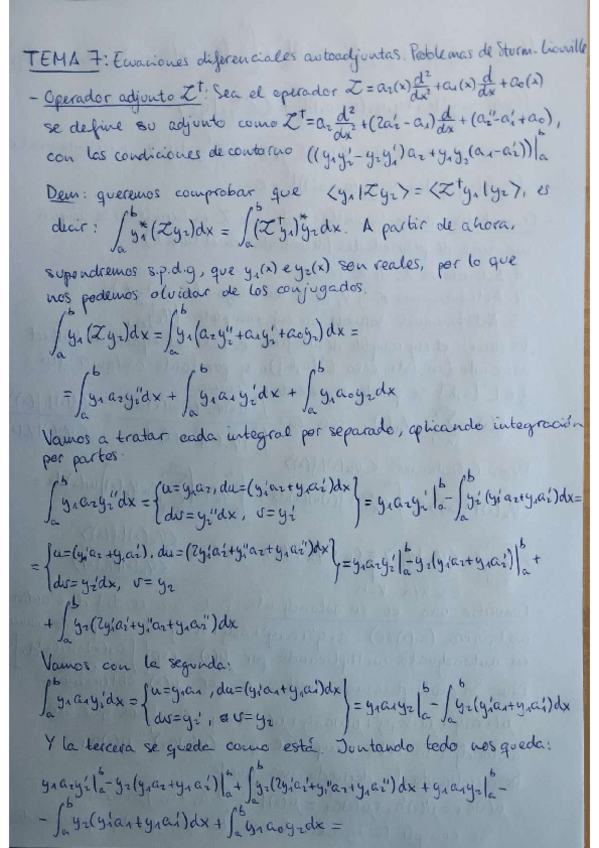 TEMA 7: Ecuaciones diferenciales autoadjuntas. Problemas de Sturm-Liouville
- Operador adjunto ℒ†: Sea el operador ℒ = a₂(x) d²/dx² + a₁(x) d/dx + a₀(x)
se define su adjunto como ℒ† = a₂ d²/dx² + (2a₂' - a₁) d/dx + (a₂'' - a₁' + a₀),
con las condiciones de contorno ((y₁y₂' - y₂y₁')a₂ + y₁y₂(a₁ - a₂'))|ₐᵇ
Dem: queremos comprobar que <y₁|ℒy₂> = <ℒ†y₁|y₂>, es
decir: ∫ₐᵇ y₁*(ℒy₂)dx = ∫ₐᵇ (ℒ†y₁)*y₂dx. A partir de ahora,
supondremos s.p.d.g, que y₁(x) e y₂(x) son reales, por lo que
nos podemos olvidar de los conjugados.
∫ₐᵇ y₁(ℒy₂)dx = ∫ₐᵇ y₁(a₂y₂'' + a₁y₂' + a₀y₂)dx =
= ∫ₐᵇ y₁a₂y₂''dx + ∫ₐᵇ y₁a₁y₂'dx + ∫ₐᵇ y₁a₀y₂dx
Vamos a tratar cada integral por separado, aplicando integración
por partes:
∫ₐᵇ y₁a₂y₂''dx = {u = y₁a₂, du = (y₁'a₂ + y₁a₂')dx
dv = y₂''dx, v = y₂'} = y₁a₂y₂'|ₐᵇ - ∫ₐᵇ y₂'(y₁'a₂ + y₁a₂')dx =
= {u = (y₁'a₂ + y₁a₂'), du = (2y₁'a₂' + y₁''a₂ + y₁a₂'')dx
dv = y₂'dx, v = y₂} = y₁a₂y₂'|ₐᵇ - y₂(y₁'a₂ + y₁a₂')|ₐᵇ +
+ ∫ₐᵇ y₂(2y₁'a₂' + y₁''a₂ + y₁a₂'')dx
Vamos con la segunda:
∫ₐᵇ y₁a₁y₂'dx = {u = y₁a₁, du = (y₁'a₁ + y₁a₁')dx
dv = y₂', v = y₂} = y₁a₁y₂|ₐᵇ - ∫ₐᵇ y₂(y₁'a₁ + y₁a₁')dx
Y la tercera se queda como está. Juntando todo nos queda:
y₁a₂y₂'|ₐᵇ - y₂(y₁'a₂ + y₁a₂')|ₐᵇ + ∫ₐᵇ y₂(2y₁'a₂' + y₁''a₂ + y₁a₂'')dx + y₁a₁y₂|ₐᵇ -
- ∫ₐᵇ y₂(y₁'a₁ + y₁a₁')dx + ∫ₐᵇ y₁a₀y₂dx =